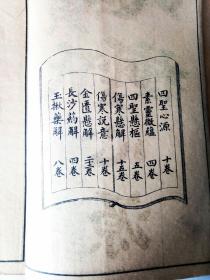 四聖心源 十卷
素靈微蘊 四卷
四聖懸樞 五卷
傷寒懸解 十五卷
傷寒説意 十卷
金匱懸解 二十二卷
長沙葯解 四卷
玉楸藥解 八卷